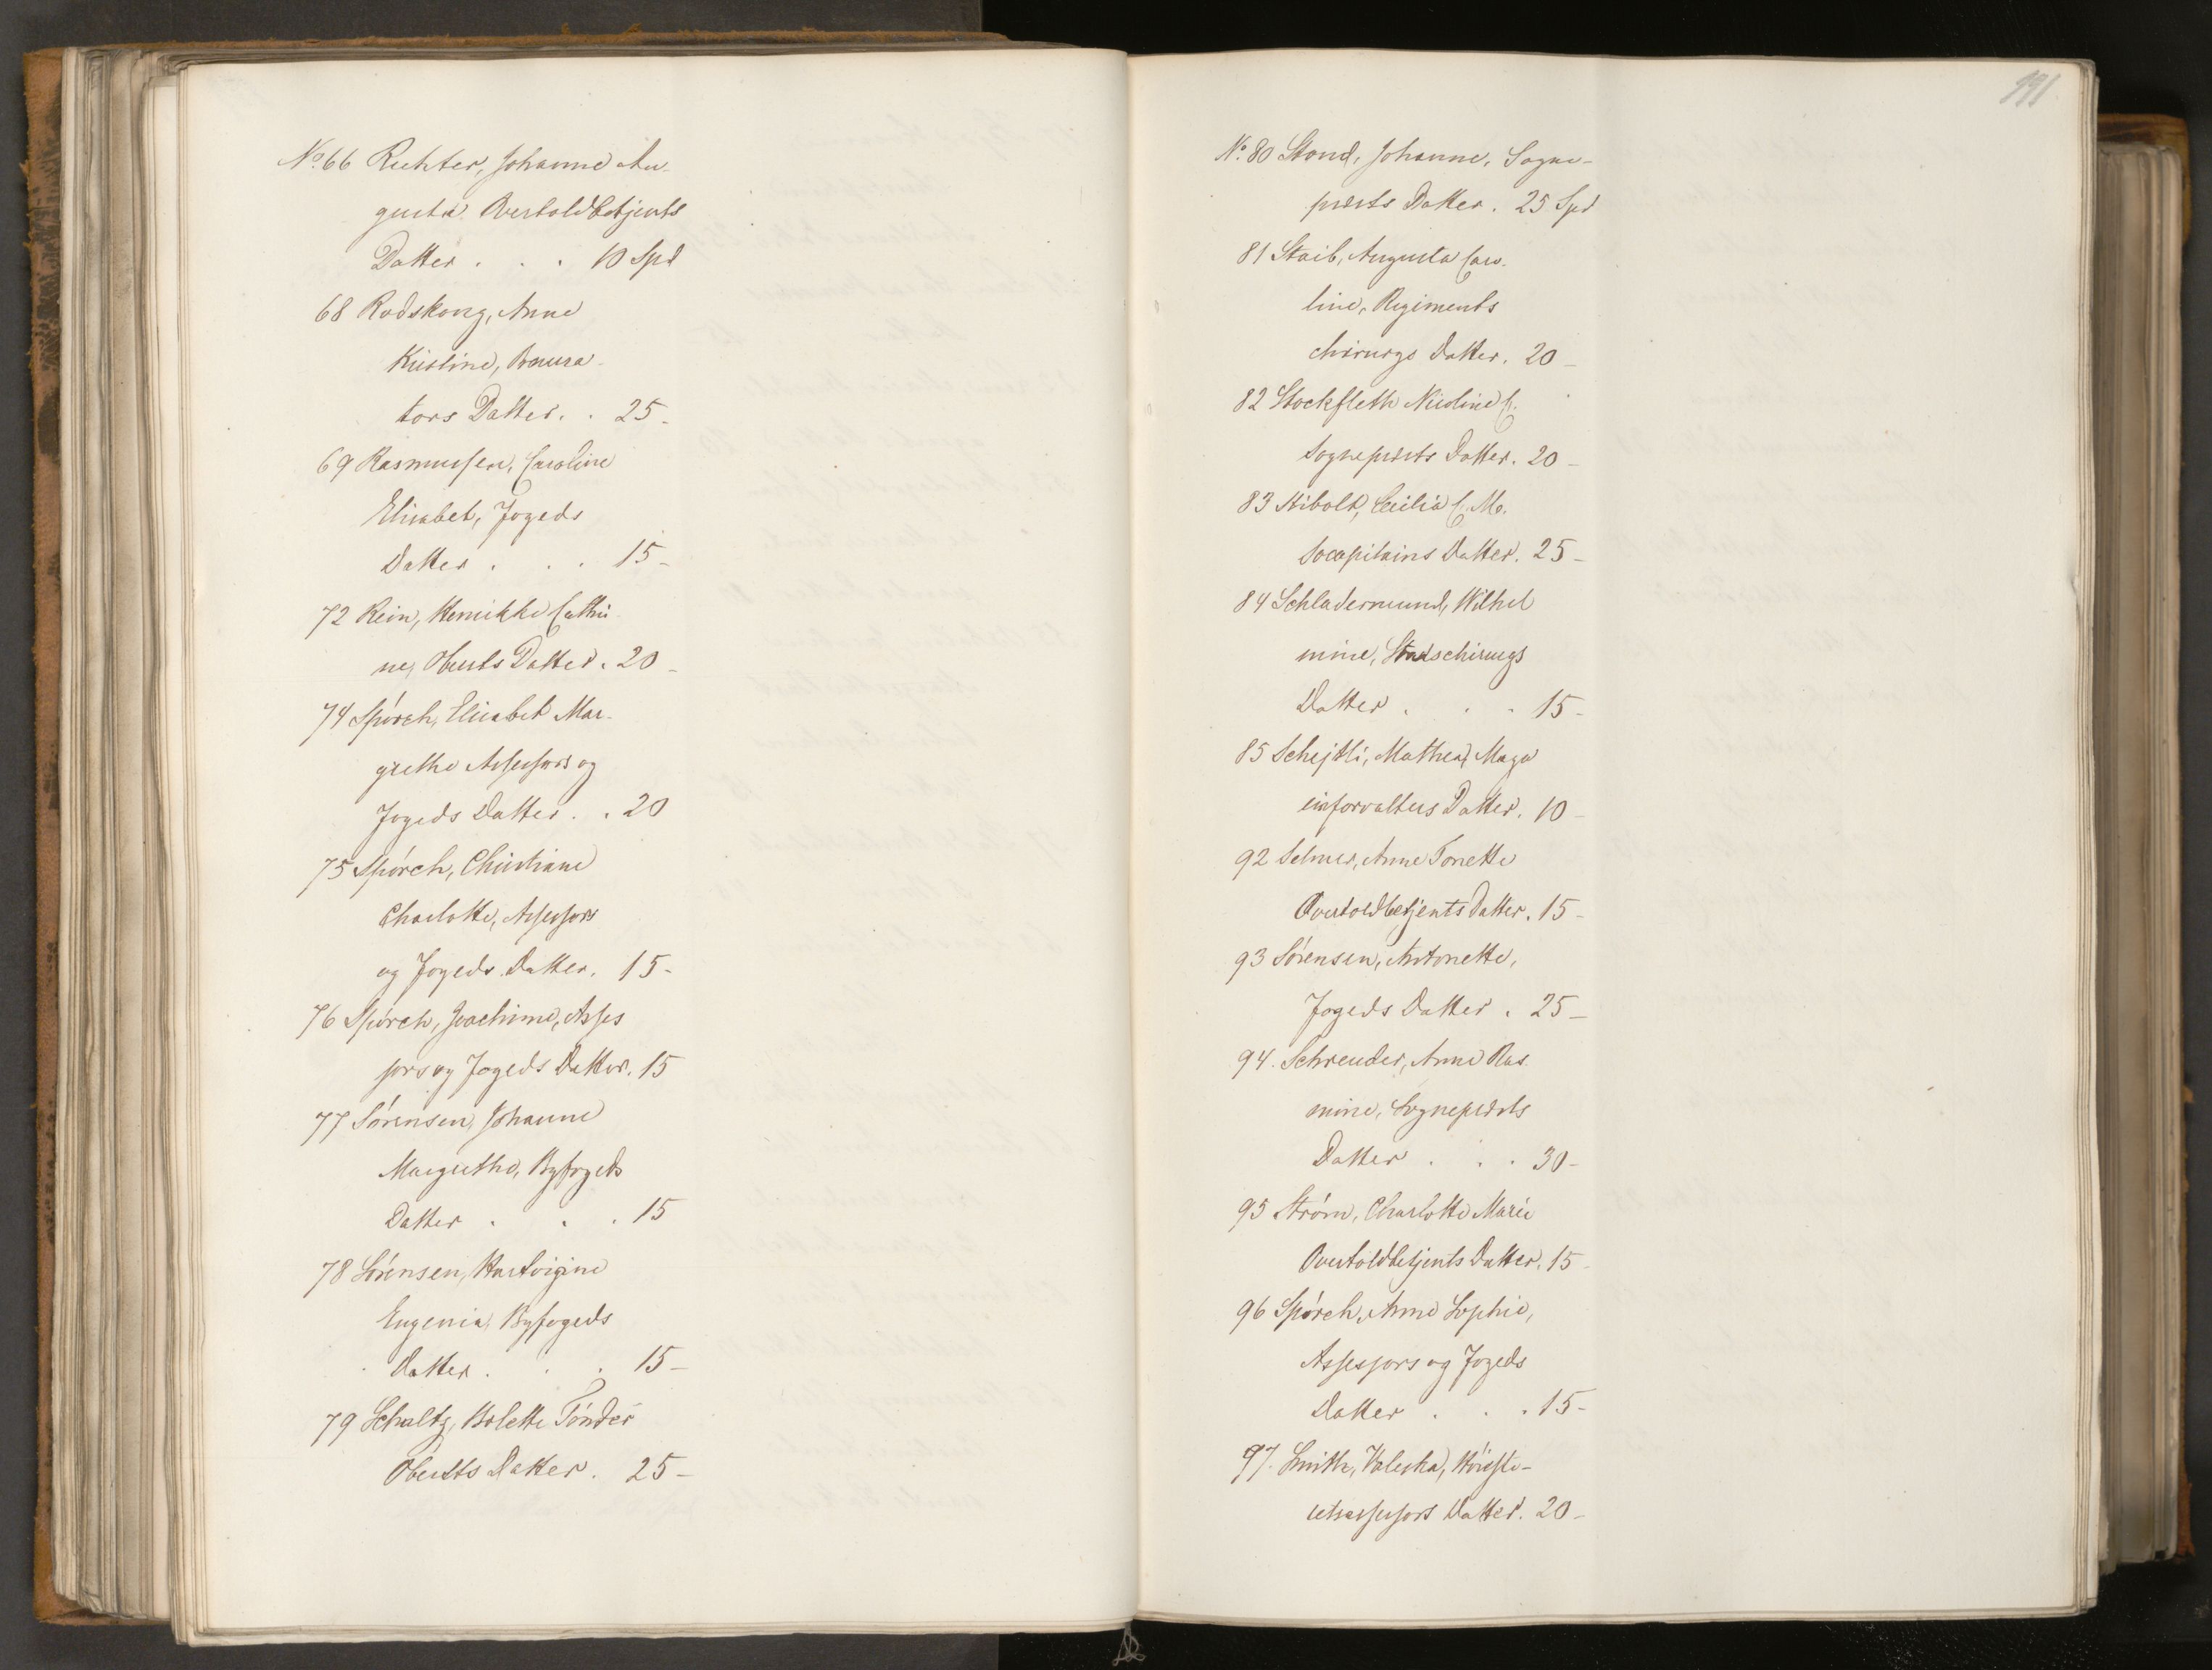 No. 66 Richter, Johanne Au-
gusta Overtoldbetjents
Datter . . . 10 Spd
68 Rodskong, Anne
Kristine, Procura-
tors Datter . . 25 -
69 Rasmussen, Caroline
Elisabet, Fogeds
Datter . . . 15 -
72 Rein, Henrikke Cathri
ne, Obersts Datter . 20 -
74 Spörch, Elisabet Mar-
grethe Assessors og
Fogeds Datter . . 20
75 Spörch, Christiane
Charlotte, Assessors
og Fogeds Datter . 15 -
76 Spörch, Joachime, Asses
sors og Fogeds Datter . 15
77 Sörensen, Johanne
Margrethe, Byfogeds
Datter . . . 15
78 Sörensen, Hartvigine
Eugenia, Byfogeds
Datter . . . 15 -
79 Schultz, Bolette Tönder
Obersts Datter . 25 -
191
No. 80 Stond, Johanne, Sogne-
prests Datter . 25 Spd
81 Staib, Augusta Caro-
line, Regiments
chirurgs Datter . 20 -
82 Stockfleth Nicoline C.
Sogneprests Datter . 20 -
83 Stibolt, Cecilia C. M.
Socapitains Datter . 25 -
84 Schladermund, Wilhel
mine, Stadschirurgs
Datter . . . 15 -
85 Schejtli, Mathea, Maga
einforvalters Datter . 10 -
92 Selmer, Anne Tonette
Overtoldbetjents Datter . 15 -
93 Sörensen, Antonette,
Fogeds Datter . 25 -
94. Schreuder, Anne Ras-
mine, Sogneprests
Datter . . . 30 -
95 Ström, Charlotte Marie
Overtoldbetjents Datter . 15 -
96 Spörch, Anne Sophie,
Assessors og Fogeds
Datter . . . 15 -
97. Smith, Valeska, Höieste-
retsassessors Datter . 20 -